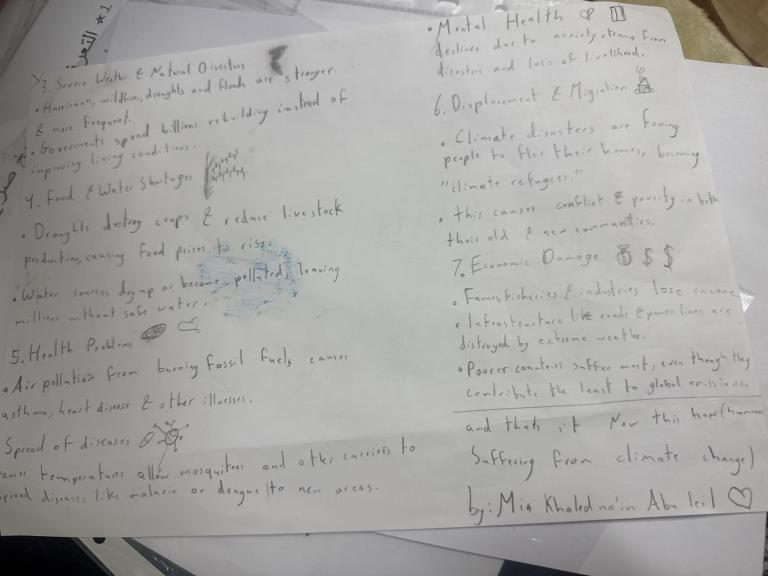 3. Severe Weather & Natural Disasters
• Hurricanes, wildfires, droughts and floods are stronger
& more frequent.
• Governments spend billions rebuilding instead of
improving living conditions.
4. Food & Water Shortages
• Droughts destroy crops & reduce livestock
production, causing food prices to rise.
• Water sources dry up or become polluted, leaving
millions without safe water.
5. Health Problems
• Air pollution from burning fossil fuels causes
asthma, heart disease & other illnesses.
Spread of diseases
temperatures allow mosquitoes and other carriers to
spread diseases like malaria or dengue to new areas.
• Mental Health
declines due to anxiety, trauma from
disasters and loss of livelihood.
6. Displacement & Migration
• Climate disasters are forcing
people to flee their homes, becoming
"climate refugees."
• this causes conflict & poverty in both
their old & new communities.
7. Economic Damage $ $
• Farms, fisheries & industries lose income
• Infrastructure like roads & power lines are
distroyed by extreme weather.
• Poorer countries suffer most, even though they
contribute the least to global emissions.
and thats it Now this how (humans
suffering from climate change)
by: Mia Khaled na'in Abu leil